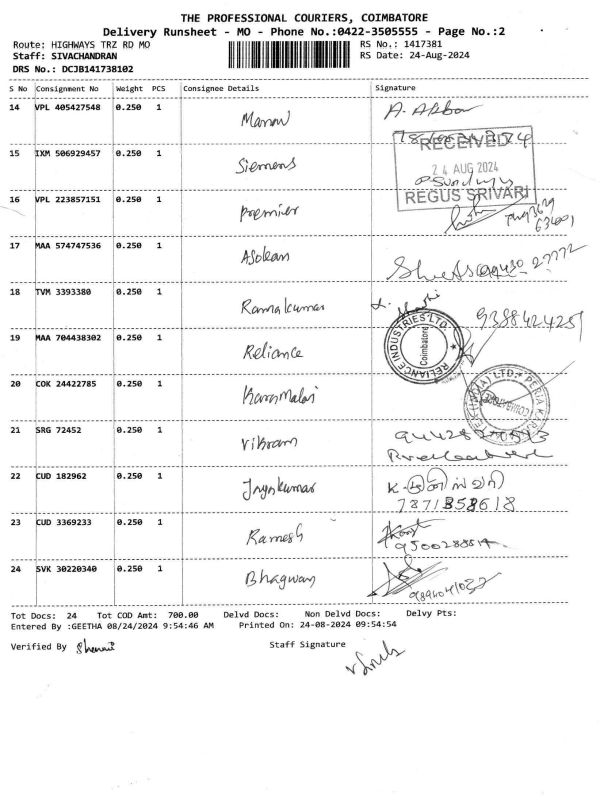 THE PROFESSIONAL COURIERS, COIMBATORE
Delivery Runsheet - MO - Phone No.:0422-3505555 - Page No.:2
Route: HIGHWAYS TRZ RD MO RS No.: 1417381
Staff: SIVACHANDRAN RS Date: 24-Aug-2024
DRS No.: DCJB141738102
S No Consignment No Weight PCS Consignee Details Signature
14 VPL 405427548 0.250 1
RECEIVED
15 IXM 506929457 0.250 1 Siemens
24 AUG 2024
REGUS SRIVARI
16 VPL 223857151 0.250 1 Premier
17 MAA 574747536 0.250 1 Asokan
18 TVM 3393380 0.250 1 Ramakumar
9388424251
19 MAA 704438302 0.250 1 Reliance
RELIANCE INDUSTRIES LTD.
Coimbatore
20 COK 24422785 0.250 1
21 SRG 72452 0.250 1 Vikram
22 CUD 182962 0.250 1 Jayakumar
7871858618
23 CUD 3369233 0.250 1 Ramesh
24 SVK 30220340 0.250 1 Bhagwan
Tot Docs: 24 Tot COD Amt: 700.00 Delvd Docs: Non Delvd Docs: Delvy Pts:
Entered By :GEETHA 08/24/2024 9:54:46 AM Printed On: 24-08-2024 09:54:54
Verified By Staff Signature